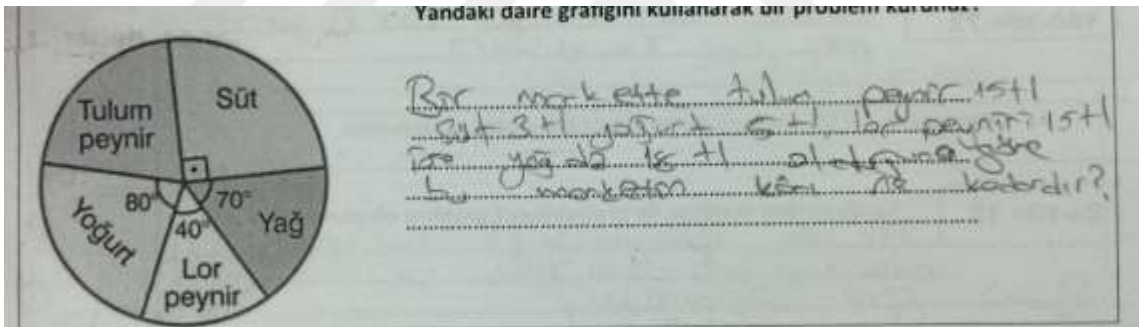 Yandaki daire grafiğini kullanarak bir problem kurunuz?
Tulum
peynir
Süt
80°
70°
40°
Yoğurt
Yağ
Lor
peynir
Bir markette tulum peynir 15 tl
süt 3 tl yoğurt 5 tl, lor peyniri 15 tl
ise yağ da 18 tl olduğuna göre
bu marketin kârı ne kadardır?